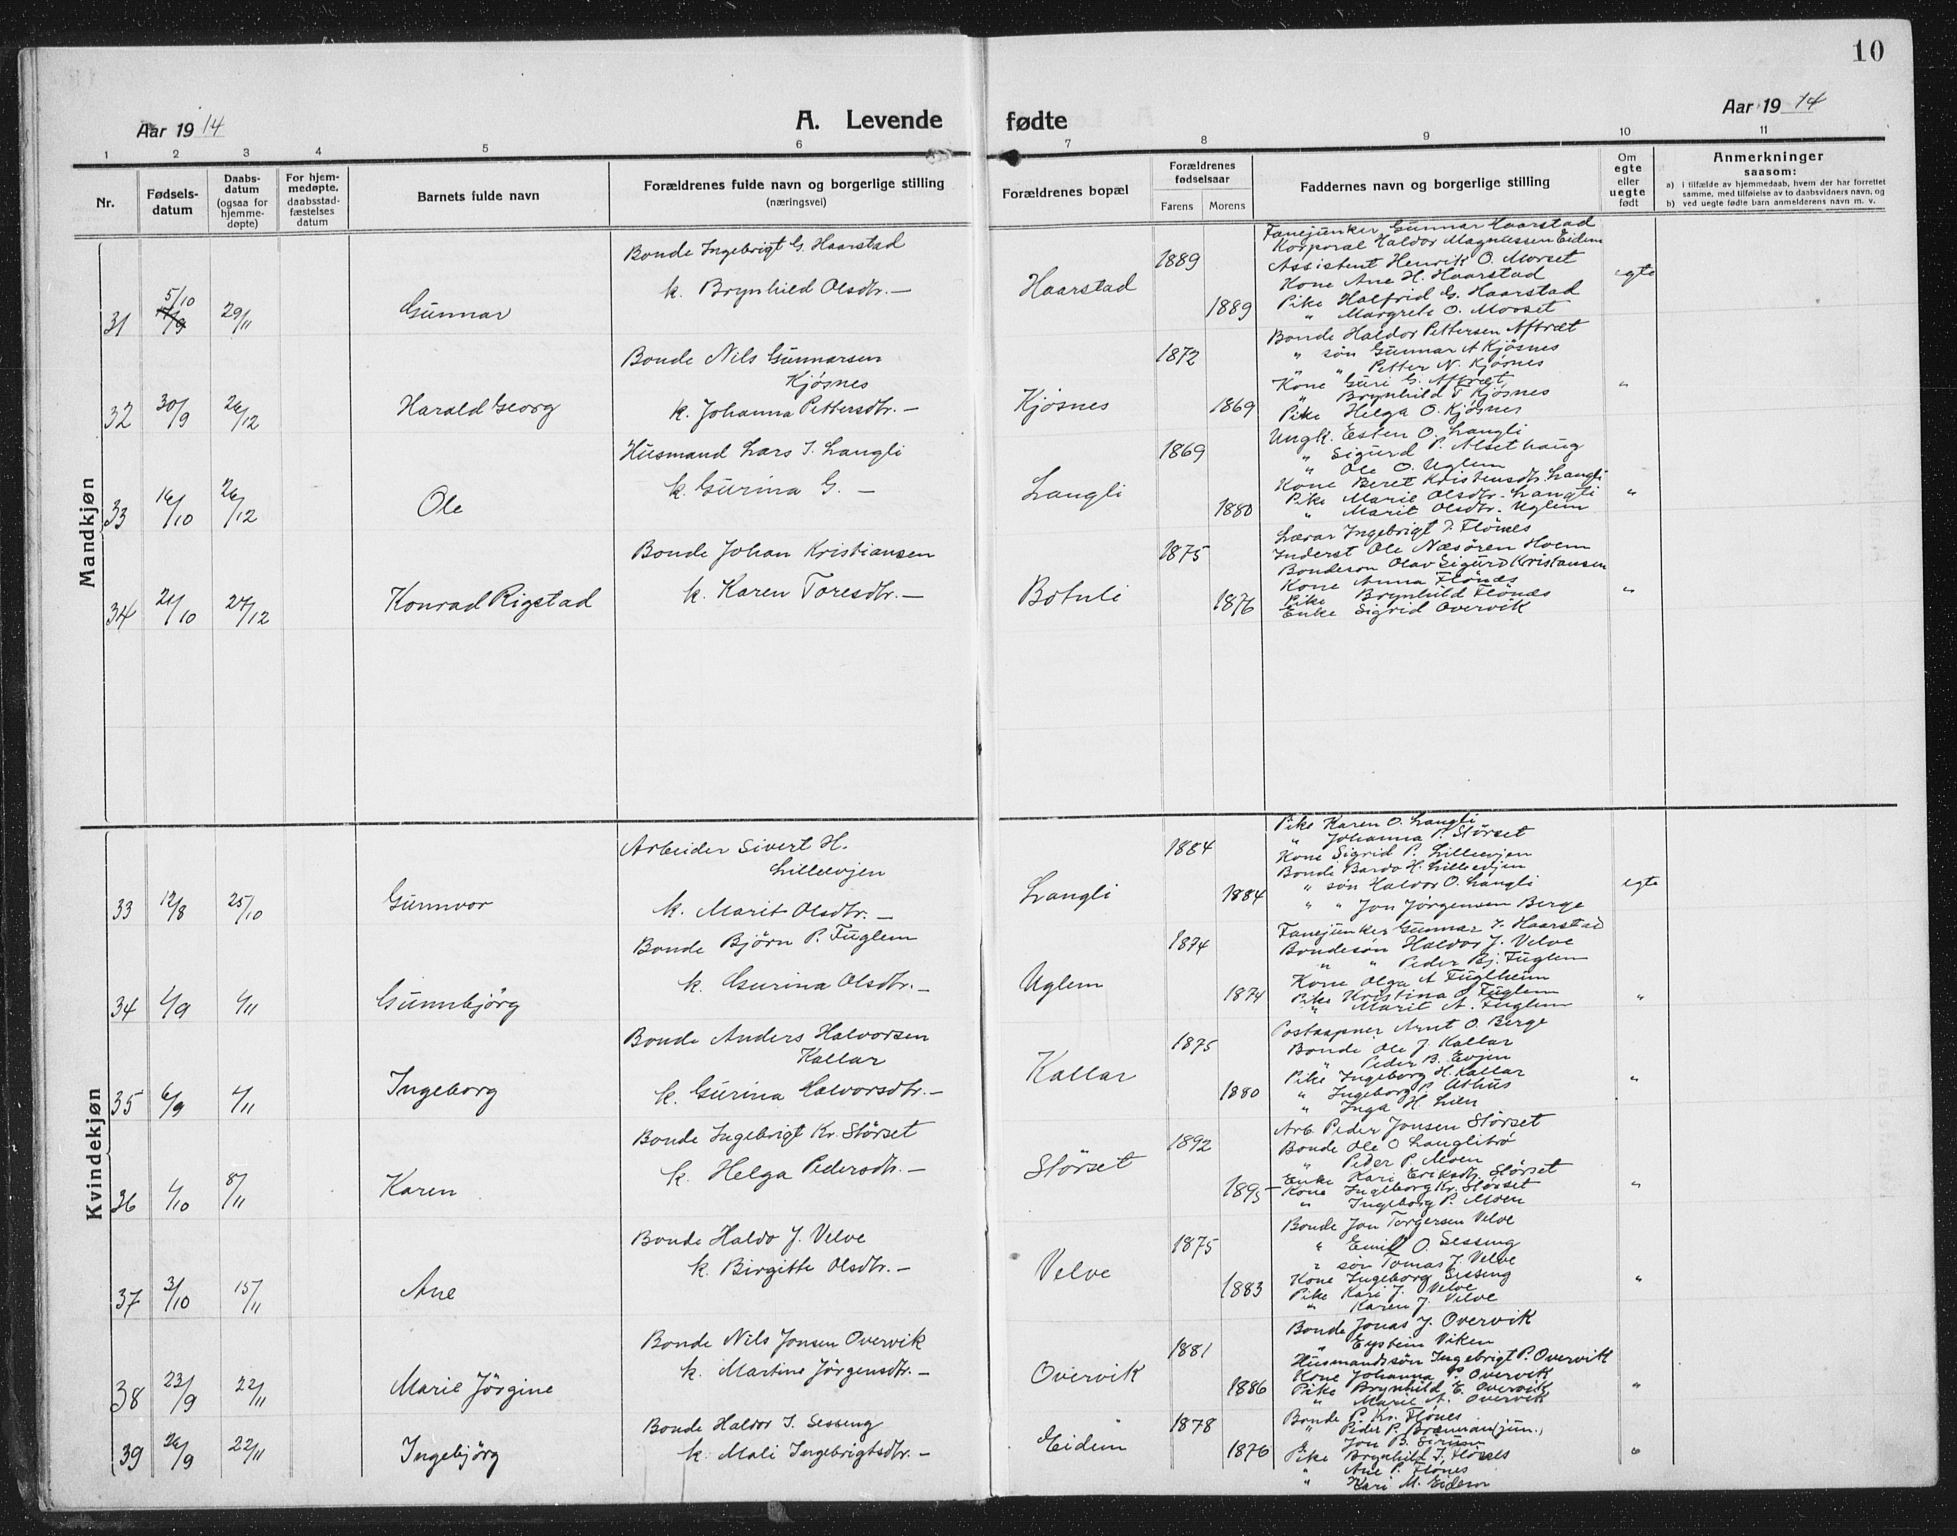 10
Aar 1914
A. Levende fødte
Aar 1914
1 2 3 4 5 6 7 8 9 10 11
Nr.
Fødsels-
datum
Daabs-
datum
(ogsaa for
hjemme-
døpte)
For hjem-
medøpte,
daabsstad-
fæstelses
datum
Barnets fulde navn
Forældrenes fulde navn og borgerlige stilling
(næringsvei)
Forældrenes bopæl
Forældrenes
fødselsaar
Farens Morens
Faddernes navn og borgerlige stilling
Om
egte
eller
uegte
født
Anmerkninger
saasom:
a) i tilfælde av hjemmedaab, hvem der har forrettet
samme, med tilføielse av to daabsvidners navn, og
b) ved uegte fødte barn anmelderens navn m. v.
Mandkjøn
31 5/10 29/11 Gunnar
Bonde Ingebrigt G. Haarstad
k. Brynhild Olsdtr. —
Haarstad 1889 1889
Fanejunker Gunnar Haarstad
Korporal Haldor Magnussen Eidem
Assistent Henrik O. Morset
Kone Ane H. Haarstad
Pike Halfrid G. Haarstad
" Margrete O. Morset
egte
32 30/9 26/12 Harald Georg
Bonde Nils Gunnarsen
Kjøsnes
k. Johanna Pettersdtr. —
Kjøsnes 1872 1869
Bonde Haldor Pettersen Aftret
" søn Gunnar A Kjøsnes
" " Petter N. Kjøsnes
Kone Guri G. Aftret
" Brynhild T Kjøsnes
Pike Helga O. Kjøsnes
"
33 16/10 26/12 Ole
Husmand Lars I. Langli
k. Gurina G. —
Langli 1869 1880
Ungk. Esten O. Langli
" Sigurd P. Alsethaug
" Ole O. Uglem
Kone Beret Kristensdtr. Langli
Pike Marie Olsdtr. Langli
" Marit Olsdtr. Uglem
"
34 21/10 27/12 Konrad Rigstad
Bonde Johan Kristiansen
k. Karen Toresdtr. —
Botuli 1875 1876
Lærar Ingebrigt J. Flønes
Inderst Ole Næsøren Hoem
Bondesøn Olav Sigurd Kristiansen
Kone Anna Flønes
Pike Brynhild Flønes
Enke Sigrid Overvik
"
Kvindekjøn
33 12/8 25/10 Gunnvor
Arbeider Sivert H.
Lilleevjen
k. Marit Olsdtr. —
Langli 1884 1884
Pike Karen O. Langli
" Johanna P. Størset
Kone Sigrid P. Lilleevjen
Bonde Bardo H. Lilleevjen
" søn Haldor O. Langli
" " Jon Jørgensen Berge
egte
34 4/9 1/11 Gunnbjørg
Bonde Bjørn P. Fuglem
k. Gurina Olsdtr. —
Uglem 1874 1874
Fanejunker Gunnar I. Haarstad
Bondesøn Haldor J. Velve
" " Peder Bj. Fuglem
Kone Olga A Fuglheim
Pike Kristina O Fuglem
" Marit A. Fuglem
"
35 6/9 1/11 Ingeborg
Bonde Anders Halvorsen
Kallar
k. Gurina Halvorsdtr. —
Kallar 1875 1880
Postaapner Arnt O. Berge
Bonde Ole J. Kallar
" Peder B. Evjen
Pike Ingeborg H. Kallar
" Ingeborg P. Ashus
" Inga H. Lien
"
36 1/10 8/11 Karen
Bonde Ingebrigt Kr. Størset
k. Helga Pedersdtr. —
Størset 1892 1895
Arb. Peder Jonsen Størset
Bonde Ole O Langlitrø
" Peder P. Moen
Enke Kari Eriksdtr. Størset
Kone Ingeborg Kr. Størset
" Ingeborg P. Moen
"
37 3/10 15/11 Ane
Bonde Haldo J. Velve
k. Birgitte Olsdtr. —
Velve 1875 1883
Bonde Jon Torgersen Velve
" Emil O. Sessing
" søn Tomas J. Velve
Kone Ingeborg Sessing
Pike Kari J. Velve
" Karen J. Velve
"
38 23/9 22/11 Marie Jørgine
Bonde Nils Jonsen Overvik
k. Martine Jørgensdtr. —
Overvik 1881 1886
Bonde Jonas J. Overvik
" Eystein Viken
Husmandssøn Ingebrigt P. Overvik
Kone Johanna P. Overvik
Pike Brynhild E. Overvik
" Marie A. Overvik
"
39 26/9 22/11 Ingebjørg
Bonde Haldor I. Sessing
k. Mali Ingebrigtsdtr. —
Eidem 1878 1876
Bonde P. Kr. Flønes
" Peder P. Brennan (jun.)
Jon B.
Pike Brynhild I. Flønes
" Ane P. Flønes
" Kari M. Eidem
"